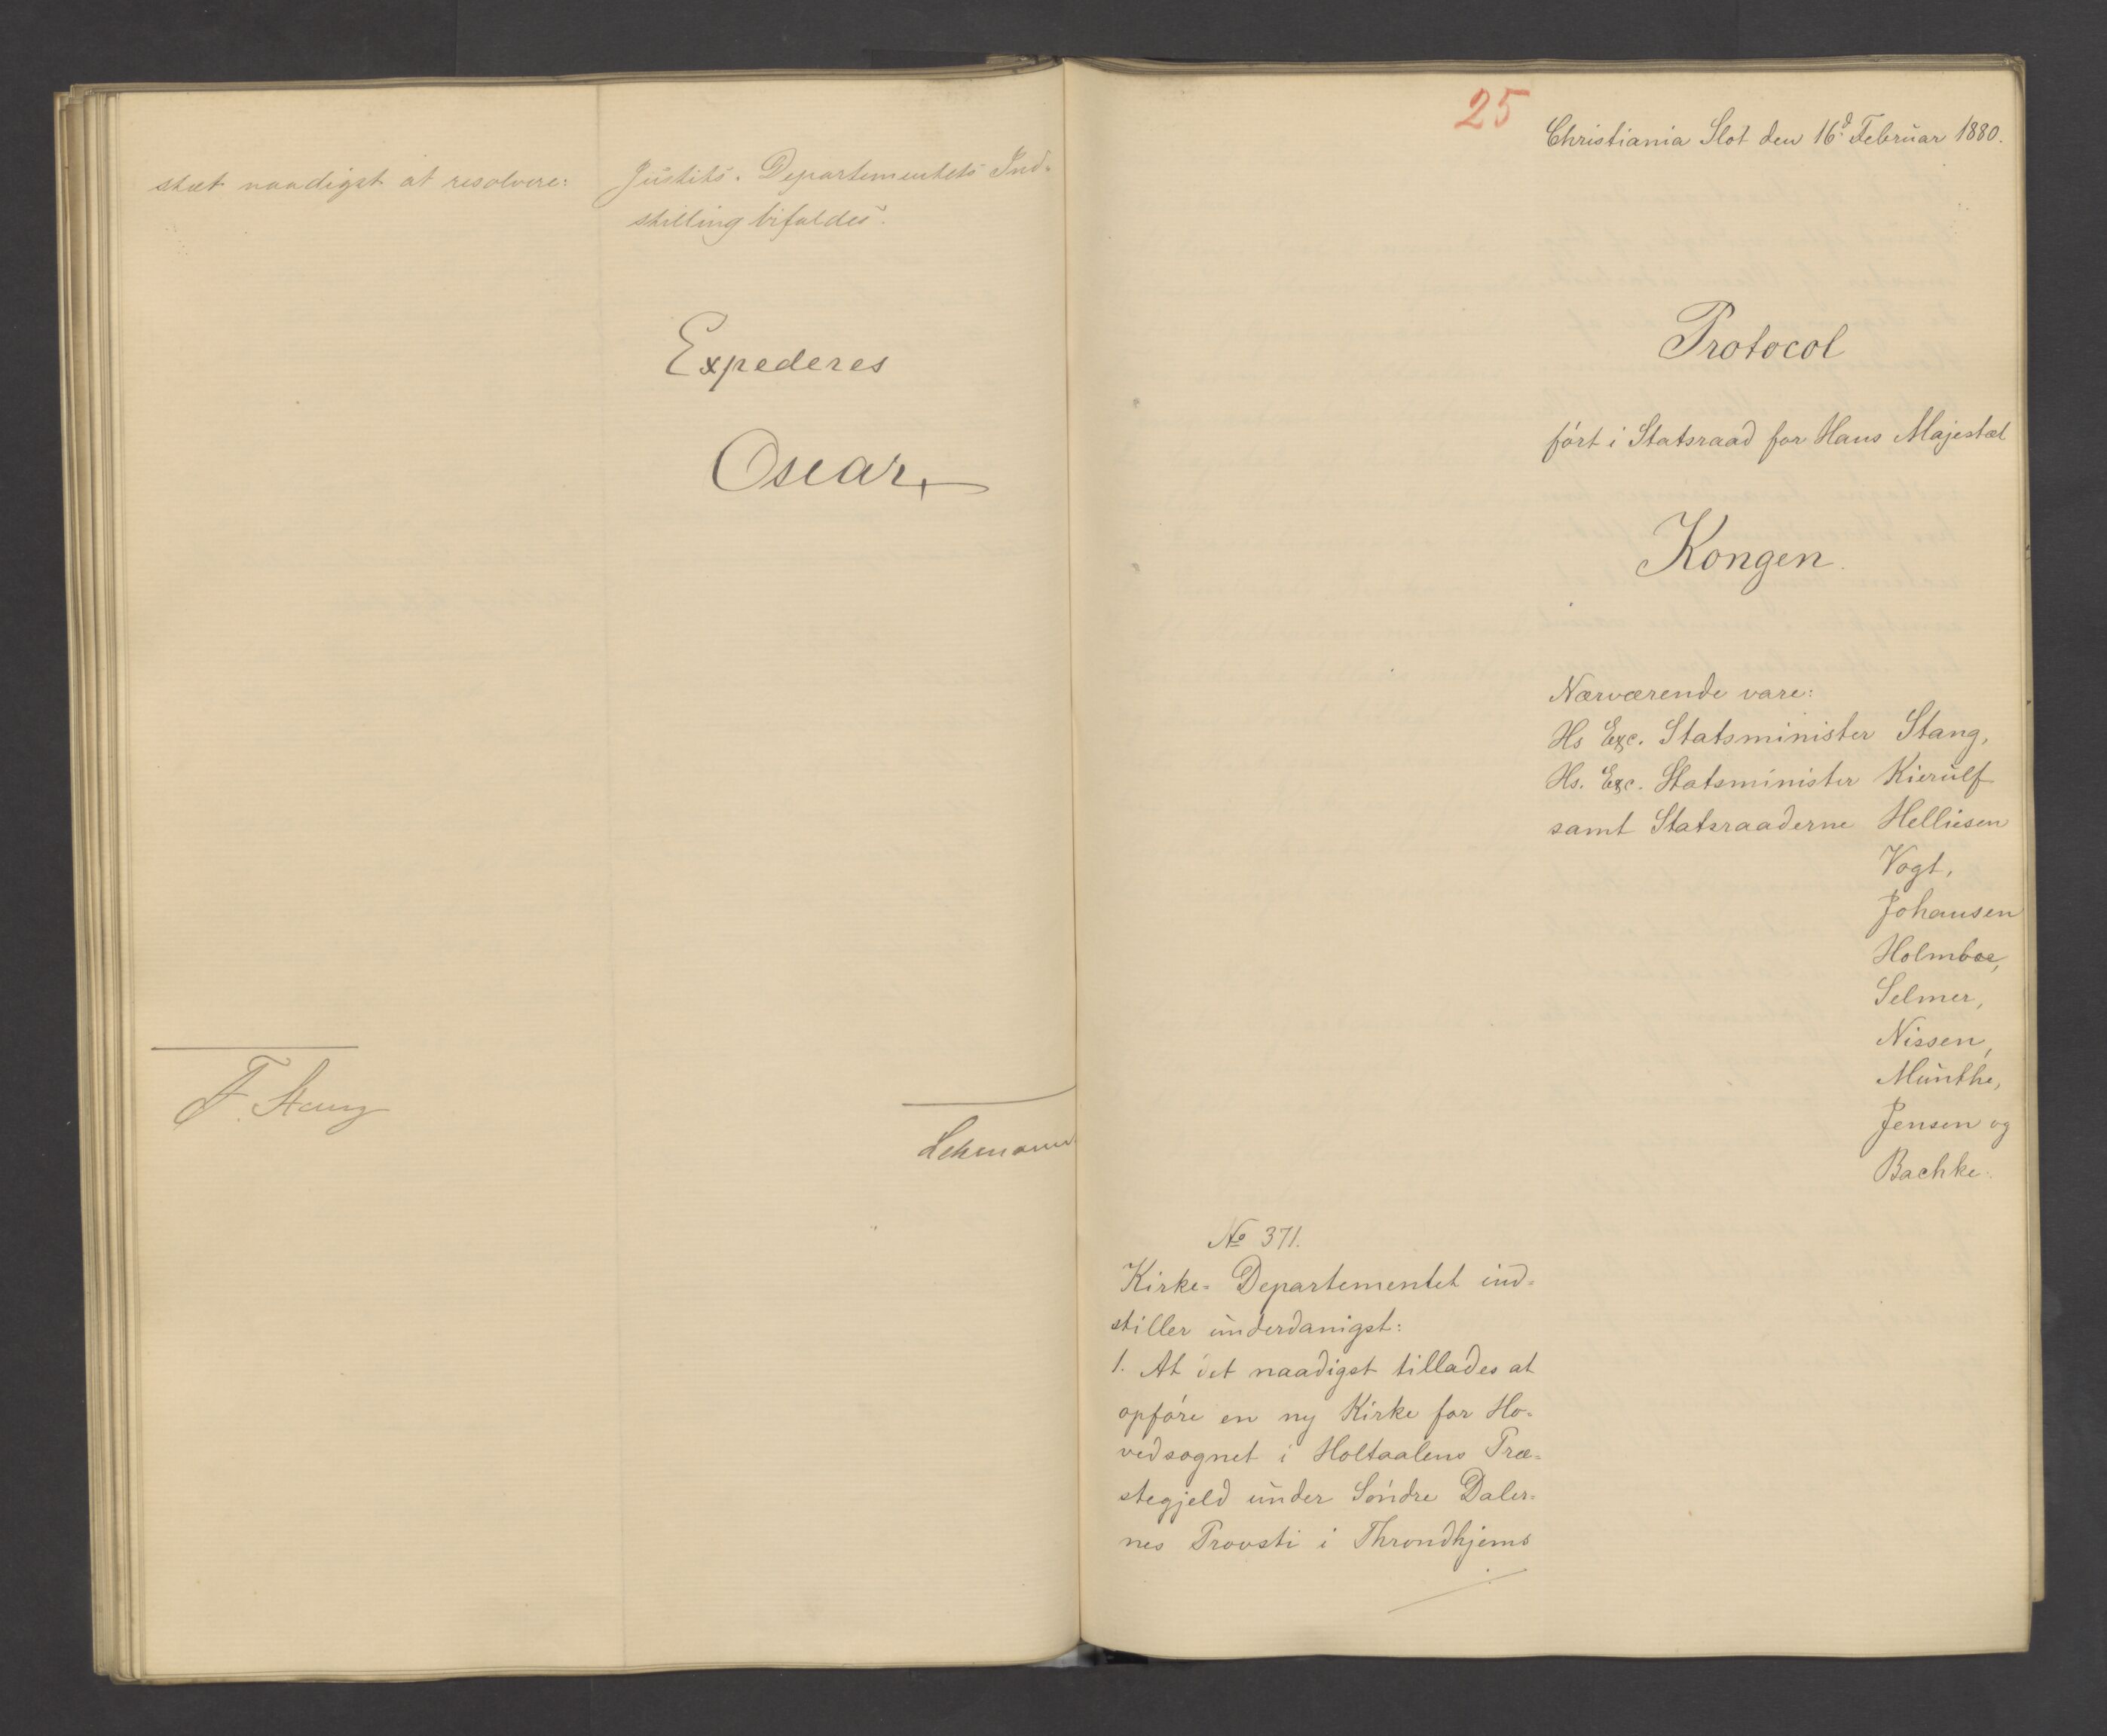 stæt naadigst at resolvere:
Justits-Departementets Ind-
stilling bifaldes.
Expederes
Oscar
F. Stang
Lehmann
25
Christiania Slot den 16d. Februar 1880.
Protocol
ført i Statsraad for Hans Majestæt
Kongen.
Nærværende vare:
Hs Exc. Statsminister Stang,
Hs. Exc. Statsminister Kierulf
samt Statsraaderne Helliesen
Vogt,
Johansen
Holmboe,
Selmer,
Nissen,
Munthe,
Jensen og
Bachke.
No 371.
Kirke-Departementet ind-
stiller underdanigst:
1. At det naadigst tillades at
opføre en ny Kirke for Ho-
vedsognet i Holtaalens Præ-
stegjeld under Søndre Daler-
nes Provsti i Throndhjems